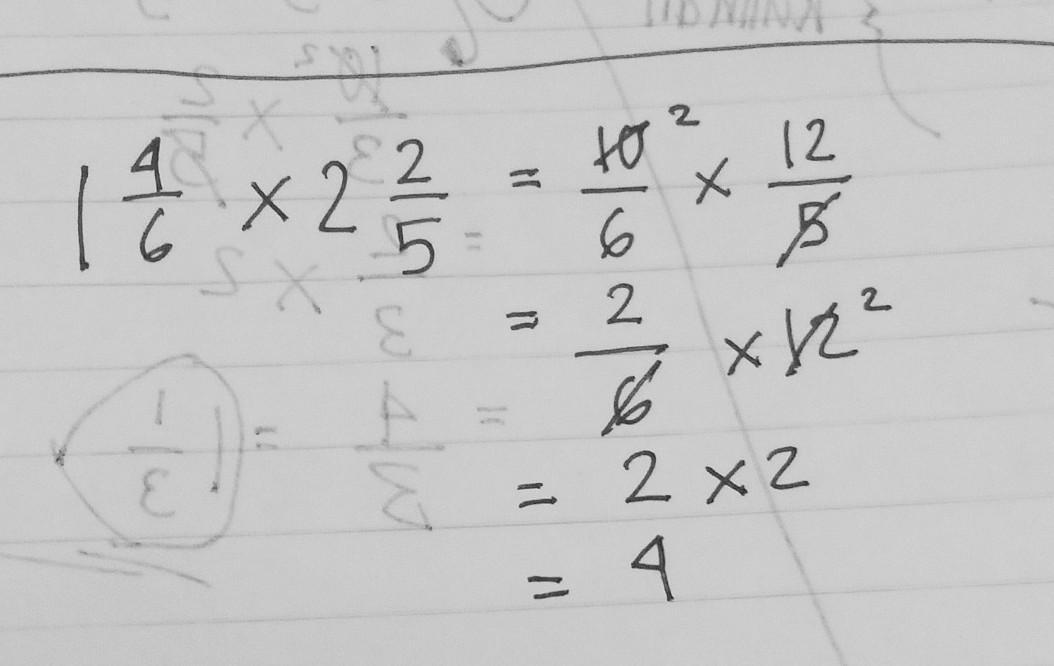 1 4/6 × 2 2/5 = 10/6 ² × 12/5
= 2/6 × 12 ²
= 2 × 2
= 4